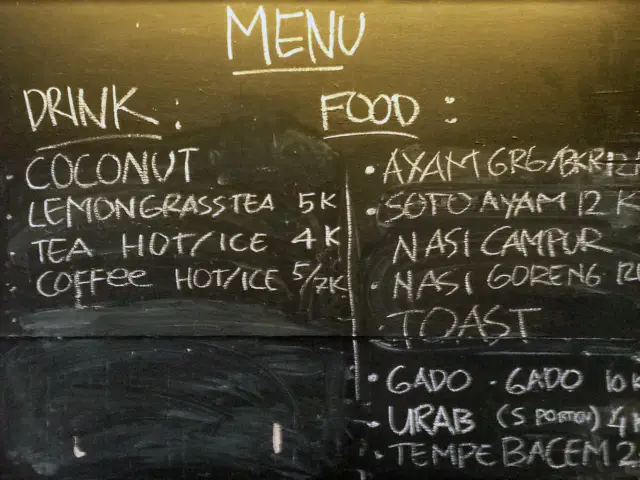 MENU
DRINK :
COCONUT
LEMONGRASSTEA 5K
TEA HOT/ICE 4K
COFFee HOT/ICE 5/7K
FOOD :
AYAM GRG/BKR
SOTO AYAM 12 K
NASI CAMPUR
NASI GORENG
TOAST
GADO - GADO 10K
URAB (S PORTION) 4K
TEMPE BACEM 2